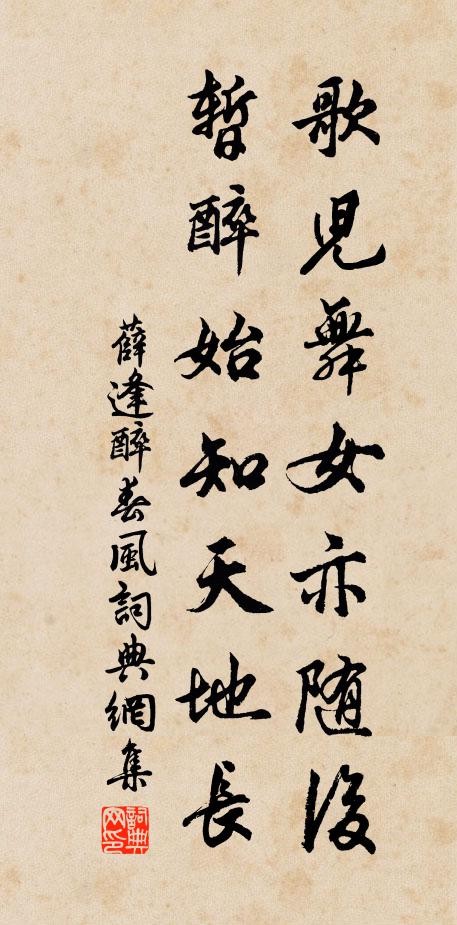 歌児舞女亦随後
暫醉始知天地長
薛逢醉春風詞典網集
詞典网印